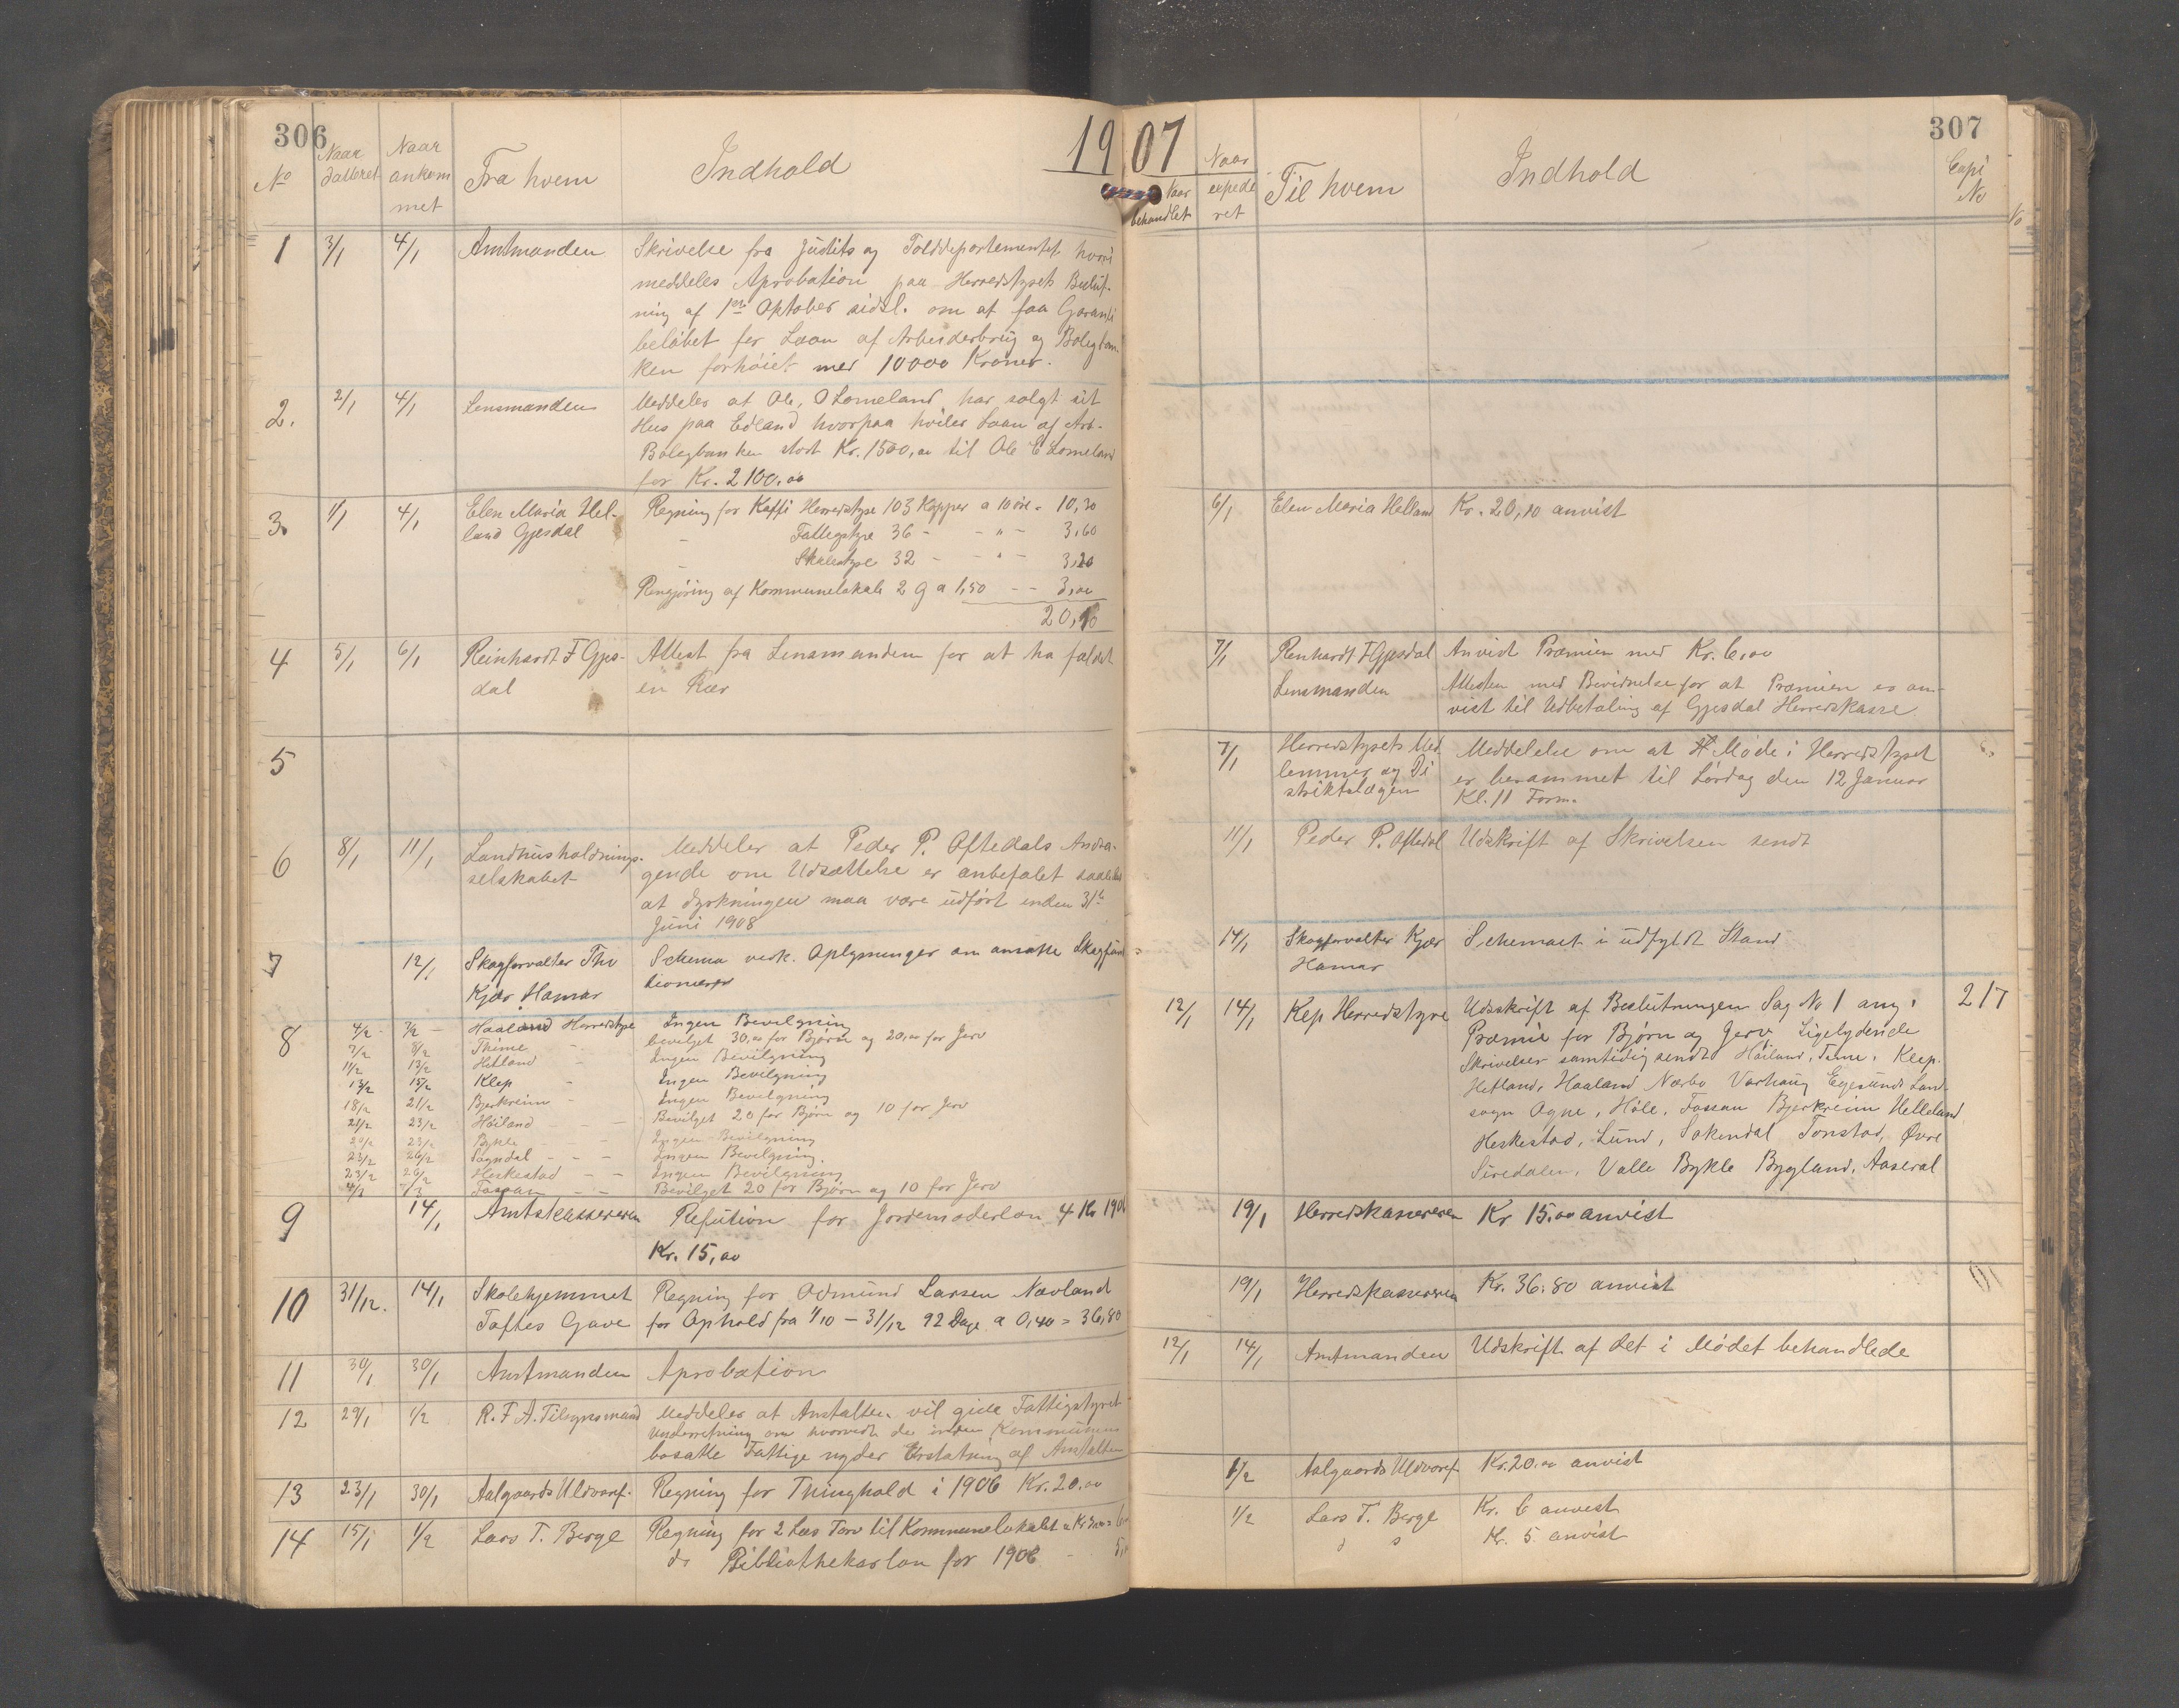 306
1907
307
No
Naar datteret
Naar ankommet
Fra hvem
Indhold
Naar behandlet
Naar expederet
Til hvem
Indhold
Copi No
1 3/1 4/1 Amtmanden Skrivelse fra Justits og Tolddepartementet hvori
meddeles Aprobation paa Herredstyrets Beslut-
ning af 1ste Oktober sidstl. om at faa Garanti
beløbet for Laan af Arbeiderbrug og Boligban-
ken forhøiet med 10000 Kroner.
2. 2/1 4/1 Lensmanden Meddeler at Ole O Lomeland har solgt sit
Hus paa Edland hvorpaa hviler Laan af Arb-
Boligbanken stort Kr. 1500,00 til Ole E Lomeland
for Kr. 2100,00
3. 1/1 4/1 Elen Maria Hel-
land Gjesdal
Regning for Kaffi Herredstyre 103 Kopper a 10 øre = 10,30
- Fattigstyre 36 - - " - 3,60
- Skolestyre 32 - - " - 3,20
Rengjøring af Kommunelokale 2 G a 1,50 - - 3,00
20,10
4 5/1 6/1 Reinhardt F Gjes-
dal
Attest fra Lensmanden for at ha fældet
en Ræv
5
6 8/1 11/1 Landhusholdnings-
selskabet
Meddeler at Peder P. Oftedals Andra-
gende om Udsættelse er anbefalet saaledes
at dyrkningen maa være udført inden 31te
Juni 1908
7 12/1 Skogforvalter Thv
Kjær Hamar
Schema vedk. Oplysninger om ansatte Skogfunk
tionærer
8 4/2 - 7/2 - Haaland Herredstyre Ingen Bevilgning
7/2 8/2 Thime - bevilget 30,00 for Bjørn og 20,00 for Jerv
11/2 13/2 Hetland - Ingen Bevilgning
13/2 15/2 Klep - Ingen Bevilgning
18/2 21/2 Bjerkreim - Ingen Bevilgning
21/2 23/2 Høiland - - Bevilget 20 for Bjørn og 10 for Jerv
23/2 Bykle - - Ingen Bevilgning
23/2 26/2 Sogndal - - - Ingen Bevilgning.
23/2 26/2 Heskestad - - Ingen Bevilgning
Fossan - - Bevilget 20 for Bjørn og 10 for Jerv
9 14/1 Amtskassereren Refution for Jordemoderløn 4 Kv 1906
Kr. 15,00
10 31/12. 14/1 Skolehjemmet
Toftes Gave
Regning for Odmund Larsen Nævland
for Ophold fra 1/10 - 31/12 92 Dage a 0,40 = 36,80
11 30/1 30/1 Amtmanden Aprobation
12 29/1 1/2 R. F A. Tilsynsmand Meddeler at Anstalten vil give Fattigstyret
Underretning om hvorvidt de inden Kommunen
bosatte Fattige nyder Erstatning af Anstalten
13 23/1 30/1 Aalgaards Uldvaref. Regning for Thinghold i 1906 Kr. 20,00
14 15/1 1/2 Lars T. Berge Regning for 2 Læs Torv til Kommunelokalet a Kr 3,00 = 6
do Bibliothekarløn for 1906 - 5,
6/1 Elen Maria Helland Kr. 20,10 anvist
7/1 Renhardt F Gjesdal Anvist Præmien med Kr. 6,00
Lensmanden Attesten med Bevidnelse for at Præmien er an-
vist til Udbetaling af Gjesdal Herredskasse
7/1 Herredstyrets Med
lemmer og Di
striktslægen
Meddelelse om at Møde i Herredstyret
er berammet til Lørdag den 12 Januar
Kl. 11 Form.
11/1 Peder P. Oftedal Udskrift af Skrivelsen sendt
14/1 Skogforvalter Kjær
Hamar
Schemaet i udfyldt Stand
12/1 14/1 Klep Herredstyre Udskrift af Beslutningen Sag No 1 ang. 217
Præmie for Bjørn og Jerv Ligelydende
Skrivelser samtidig sendt Høiland, Time, Klep.
Hetland, Haaland Nærbø Varhaug Egersunds Land-
sogn Ogne, Høle, Fossan Bjerkreim Helleland,
Heskestad, Lund, Sokendal Tonstad, Øvre
Siredalen, Valle Bykle Bygland, Aaseral
19/1 Herredskassereren Kr 15,00 anvist
19/1 Herredskassereren Kr. 36,80 anvist
12/1 14/1 Amtmanden Udskrift af det i Mødet behandlede
1/2 Aalgaards Uldvaref. Kr. 20,00 anvist
1/2 Lars T. Berge Kr. 6 anvist
Kr. 5 anvist